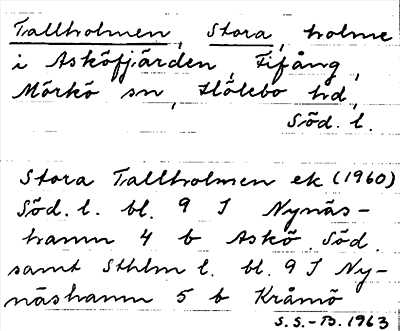 Tallholmen, Stora, holme
i Asköfjärden, Fifång,
Mörkö sn, Hölebo hd,
Söd. l.
Stora Tallholmen ek (1960)
Söd. l. bl. 9 I Nynäs-
hamn 4 b Askö Söd.
samt Sthlm l. bl. 9 I Ny-
näshamn 5 b Krämö
S.S.-B. 1963